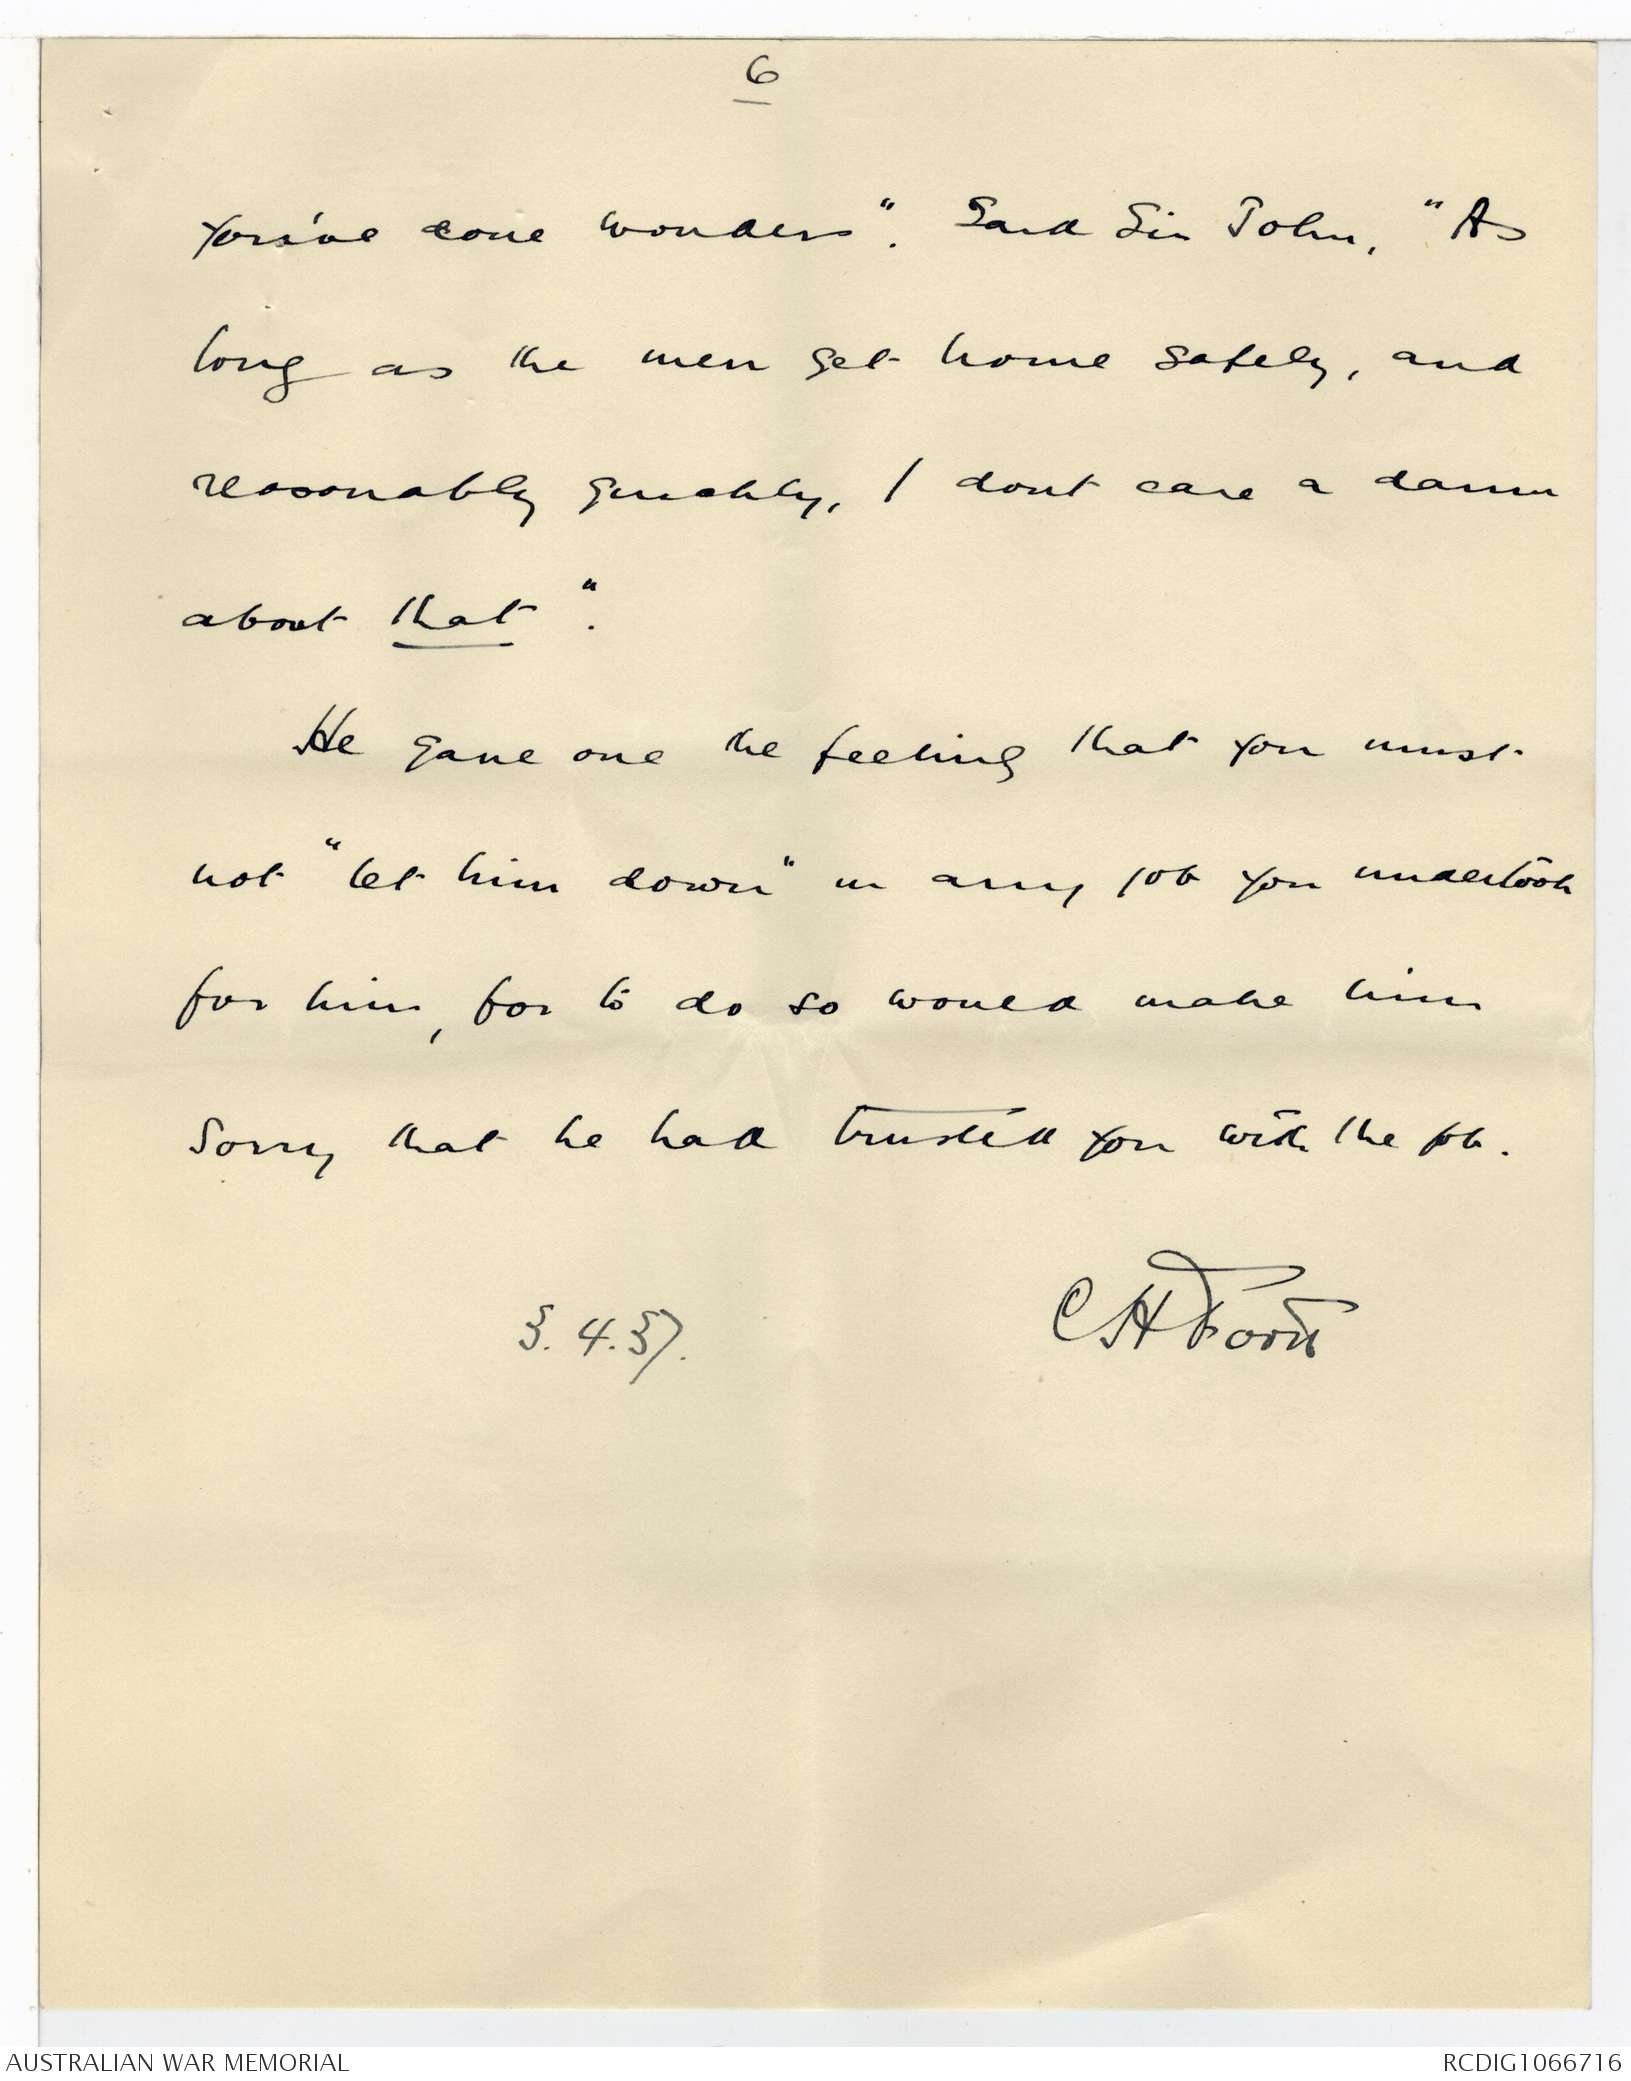 6
you've done wonders". Said Sir John, "As
long as the men get home safely, and
reasonably quickly, I dont care a damn
about that".
He gave one the feeling that you must
not "let him down" in any job you undertook
for him, for to do so would make him
sorry that he had trusted you with the job.
3.4.37. C H Foott
AUSTRALIAN WAR MEMORIAL RCDIG1066716